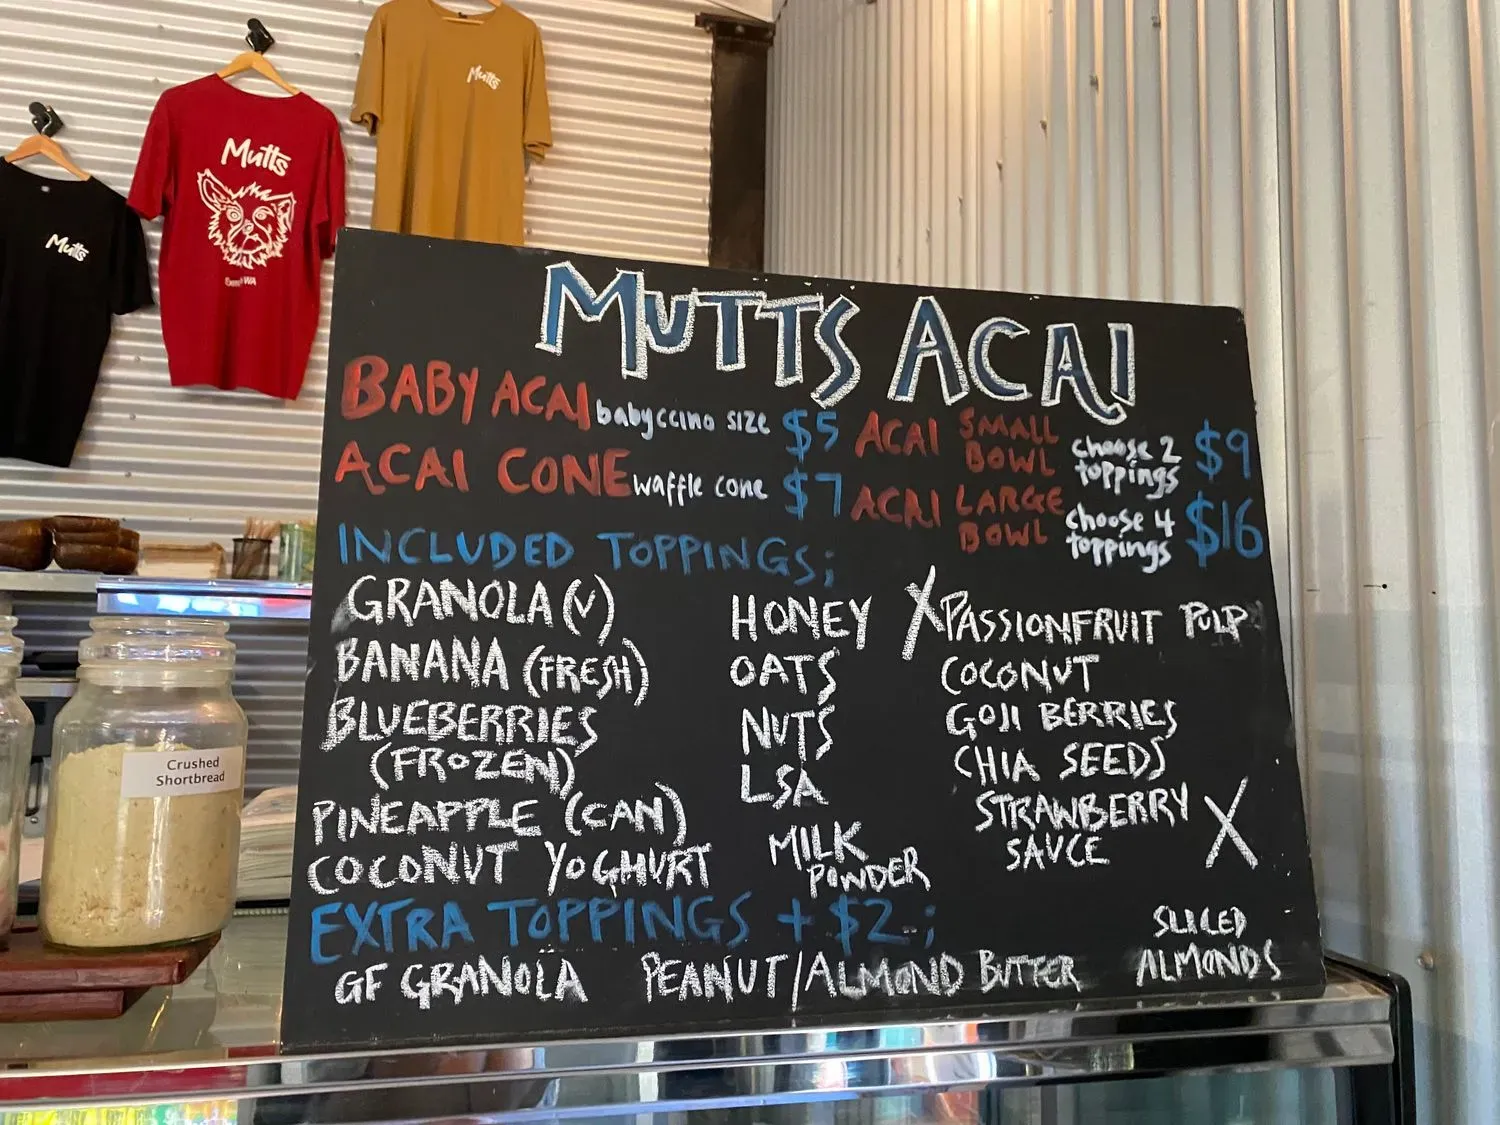 Mutts
Mutts
Mutts
WA
Crushed
Shortbread
MUTTS ACAI
BABY ACAI babyccino size $5
ACAI CONE waffle cone $7
ACAI SMALL BOWL choose 2 toppings $9
ACAI LARGE BOWL choose 4 toppings $16
INCLUDED TOPPINGS;
GRANOLA (V)
BANANA (FRESH)
BLUEBERRIES
(FROZEN)
PINEAPPLE (CAN)
COCONUT YOGHURT
HONEY
OATS
NUTS
LSA
MILK
POWDER
X PASSIONFRUIT PULP
COCONUT
GOJI BERRIES
CHIA SEEDS
STRAWBERRY X
SAUCE
EXTRA TOPPINGS + $2;
GF GRANOLA PEANUT/ALMOND BUTTER
SLICED
ALMONDS